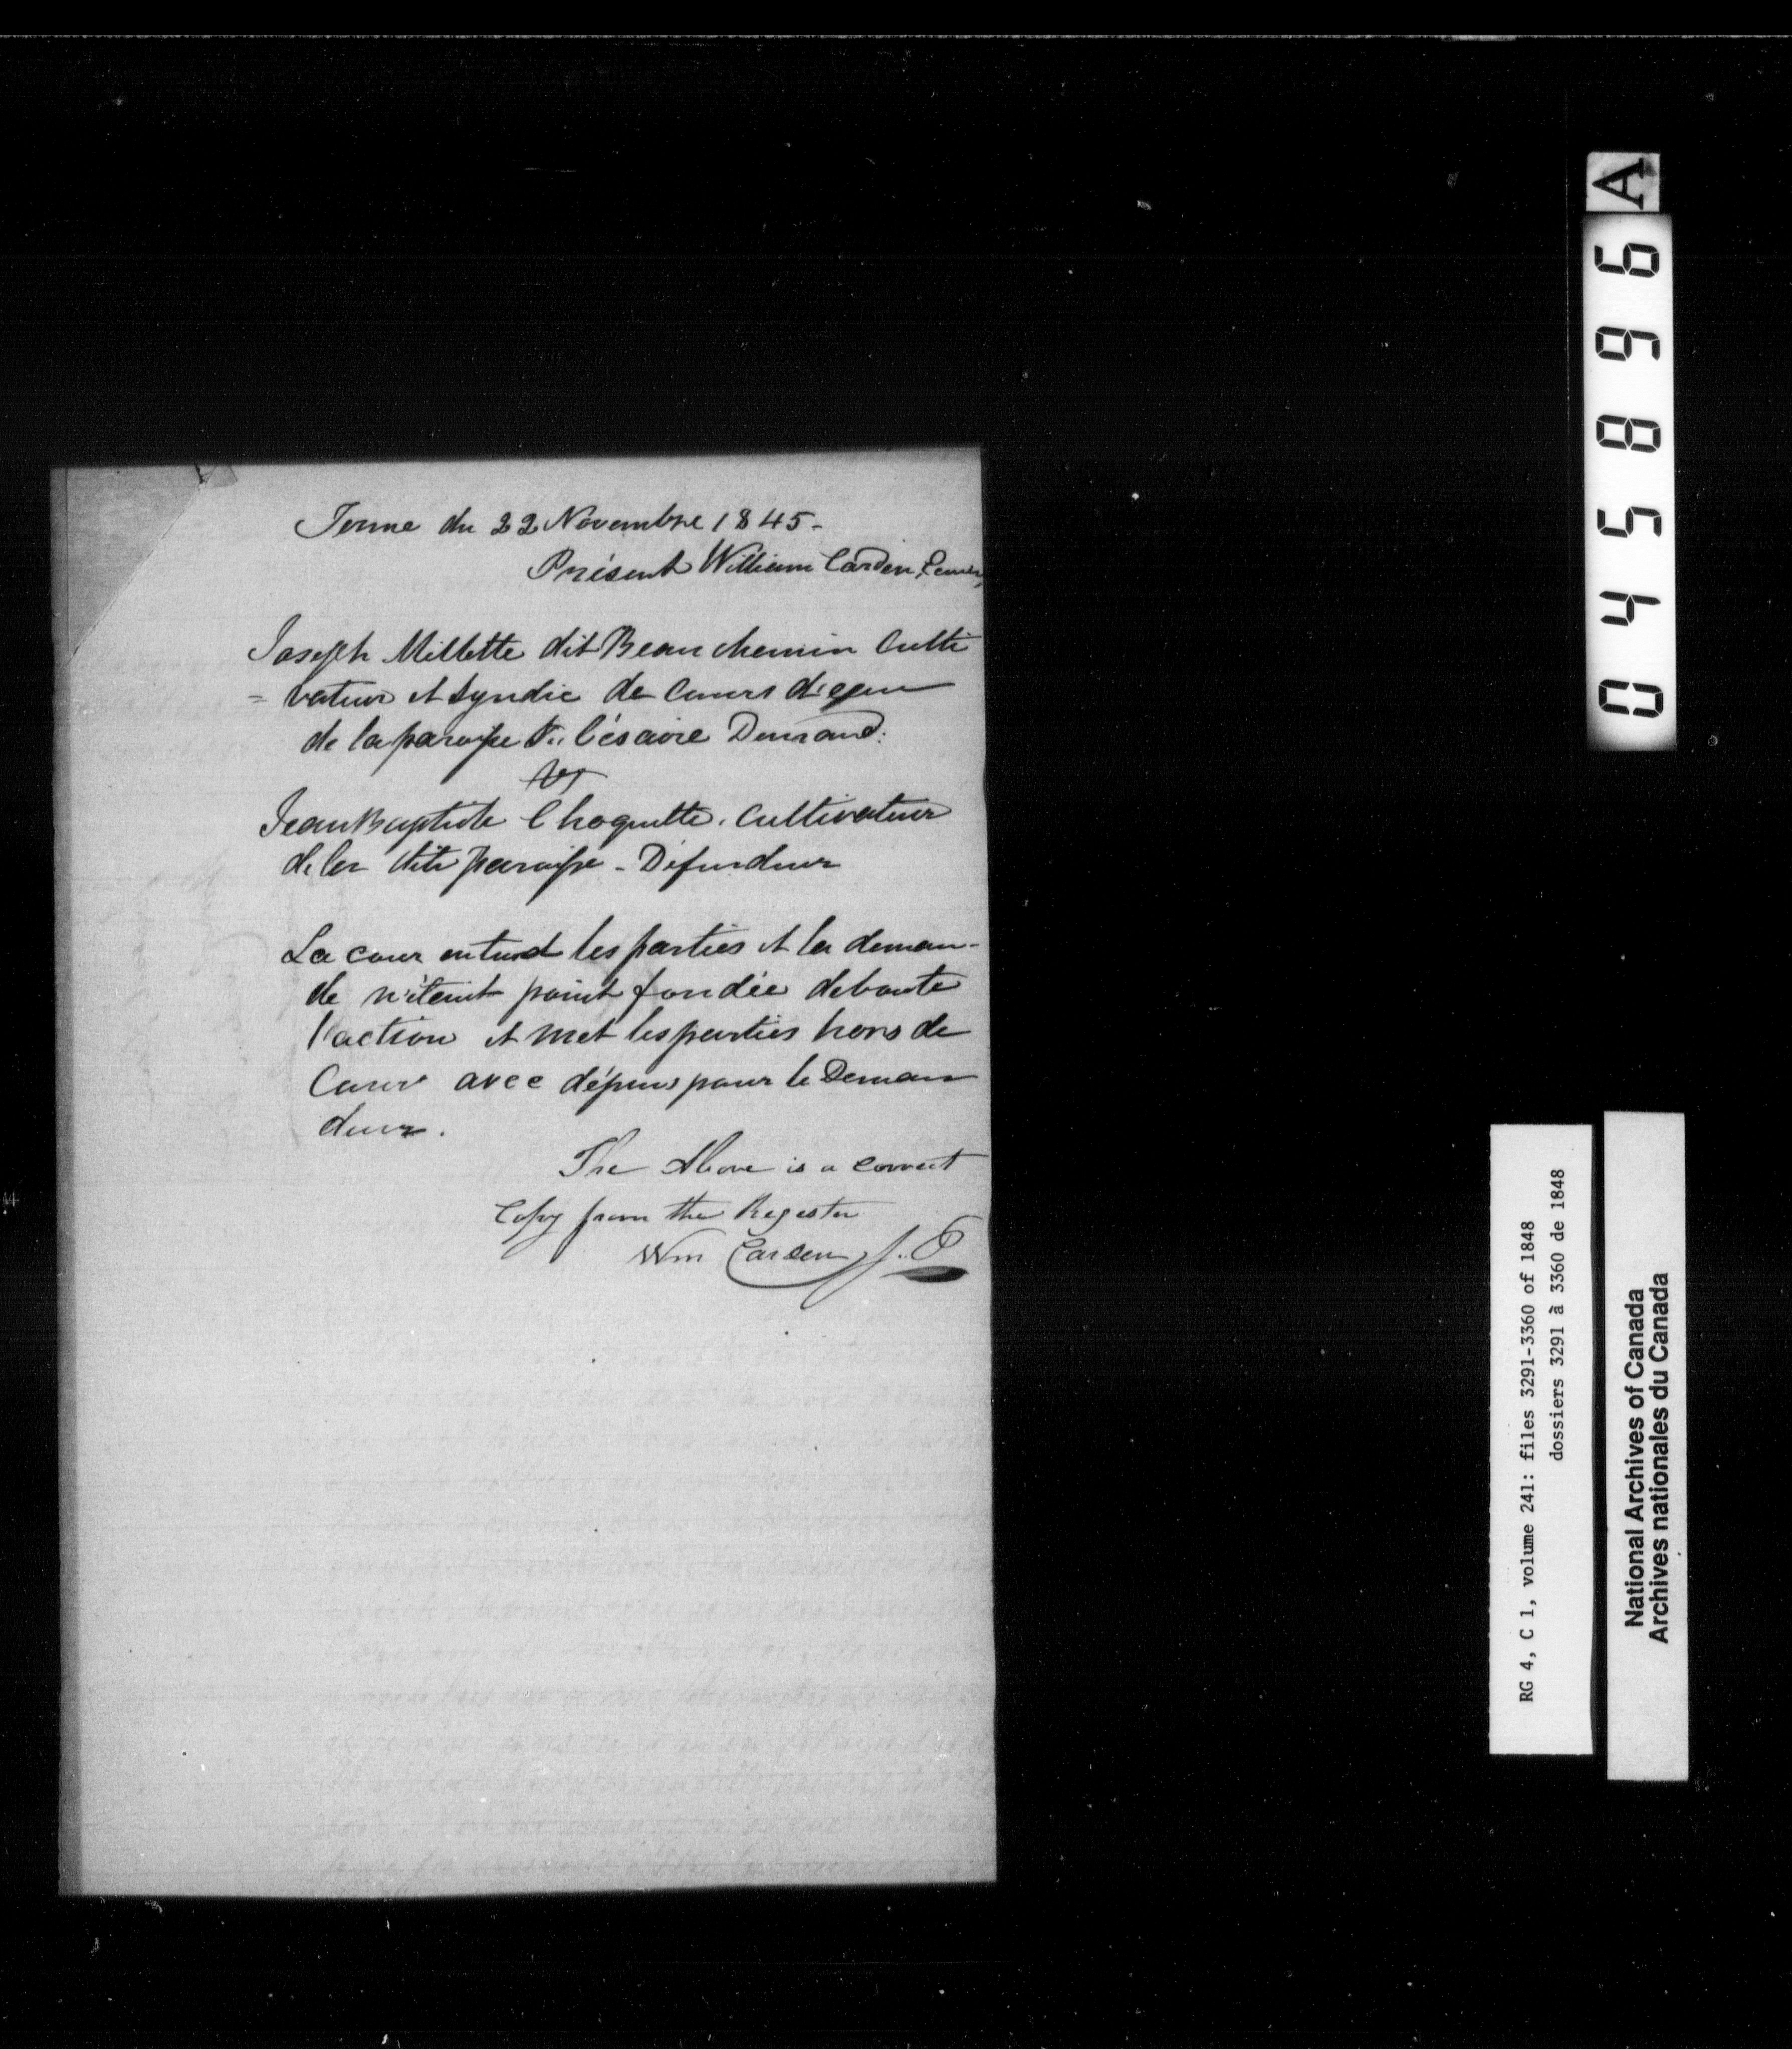 Terme du 22 Novembre 1845-
Présent William Carden,
Joseph Millette dit Beauchemin Culti
= vateur et Syndic de Cours d'eau
de la paroisse St. Césaire Demand:
vs
Jean Baptiste Choquette. Cultivateur
de la dite paroisse - Défendeur
La cour entend les parties et la deman-
de n'étant point fondée deboute
l'action et met les parties hors de
Cour avec dépens pour le Deman
deur.
The Above is a correct
Copy from the Register
Wm Carden J.P
A
045896
RG 4, C 1, volume 241: files 3291-3360 of 1848
dossiers 3291 à 3360 de 1848
National Archives of Canada
Archives nationales du Canada